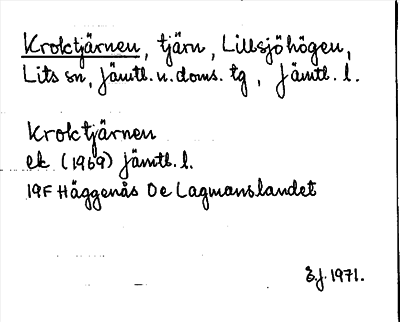 Kroktjärnen, tjärn, Lillsjöhögen,
Lits sn, Jämtl. n. doms. tg, Jämtl. l.
Kroktjärnen
ek (1969) Jämtl. l.
19F Häggenås De Lagmanslandet
E.J. 1971.